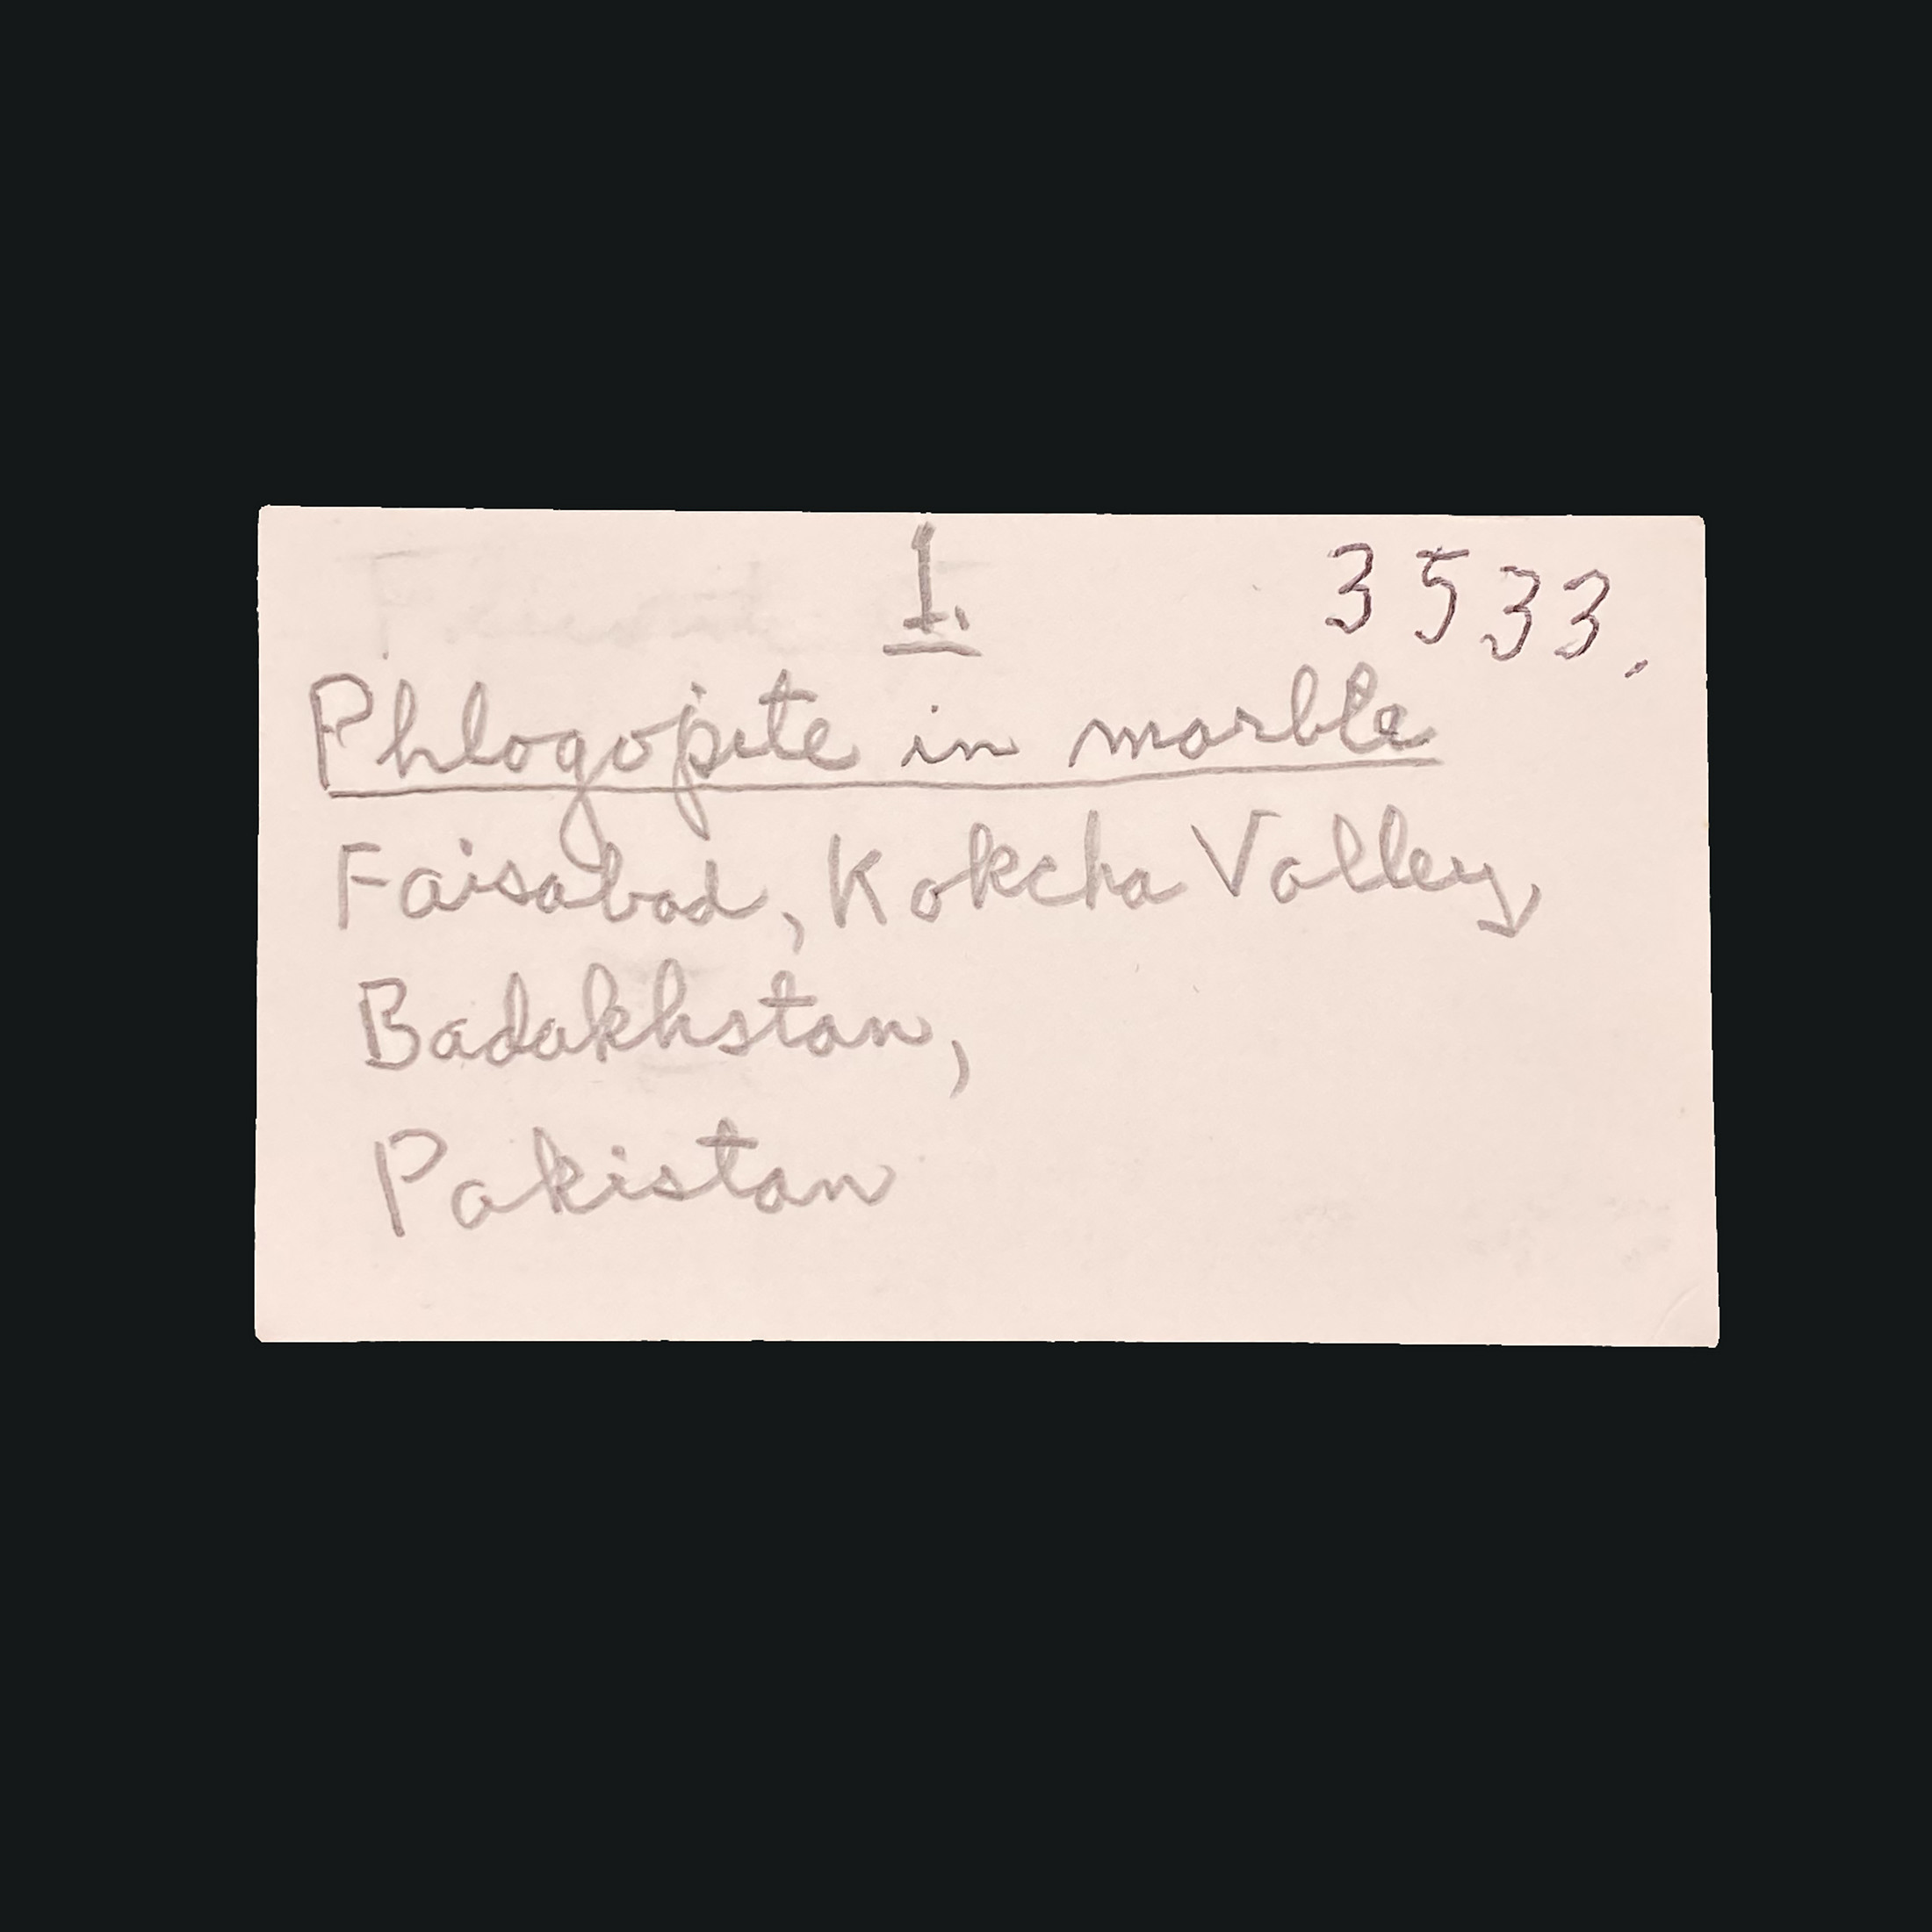 1. 3533.
Phlogopite in marble
Faisabad, Kokcha Valley,
Badakhstan,
Pakistan